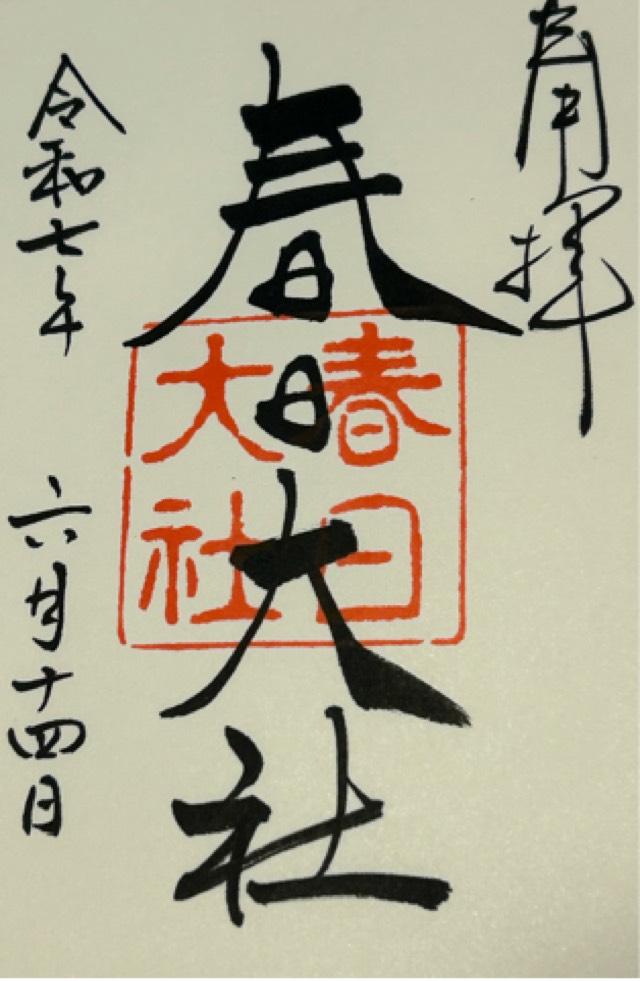 奉拝
春日大社
春日
大社
令和七年
六月十四日